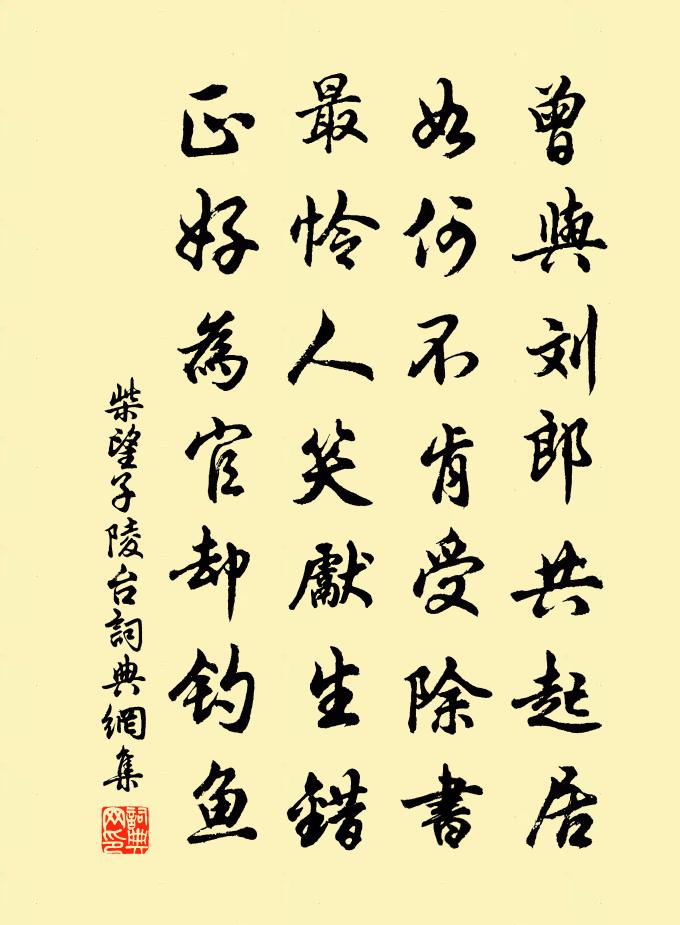 曾與刘郎共起居
如何不肯受除書
最怜人笑獻生錯
正好為官却钓鱼
柴望子陵台詞典網集
詞典网印